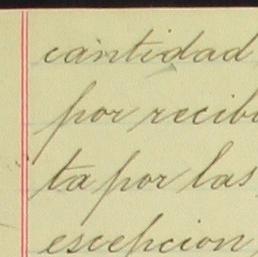 cantidad
por recibi
ta por las
escepcion